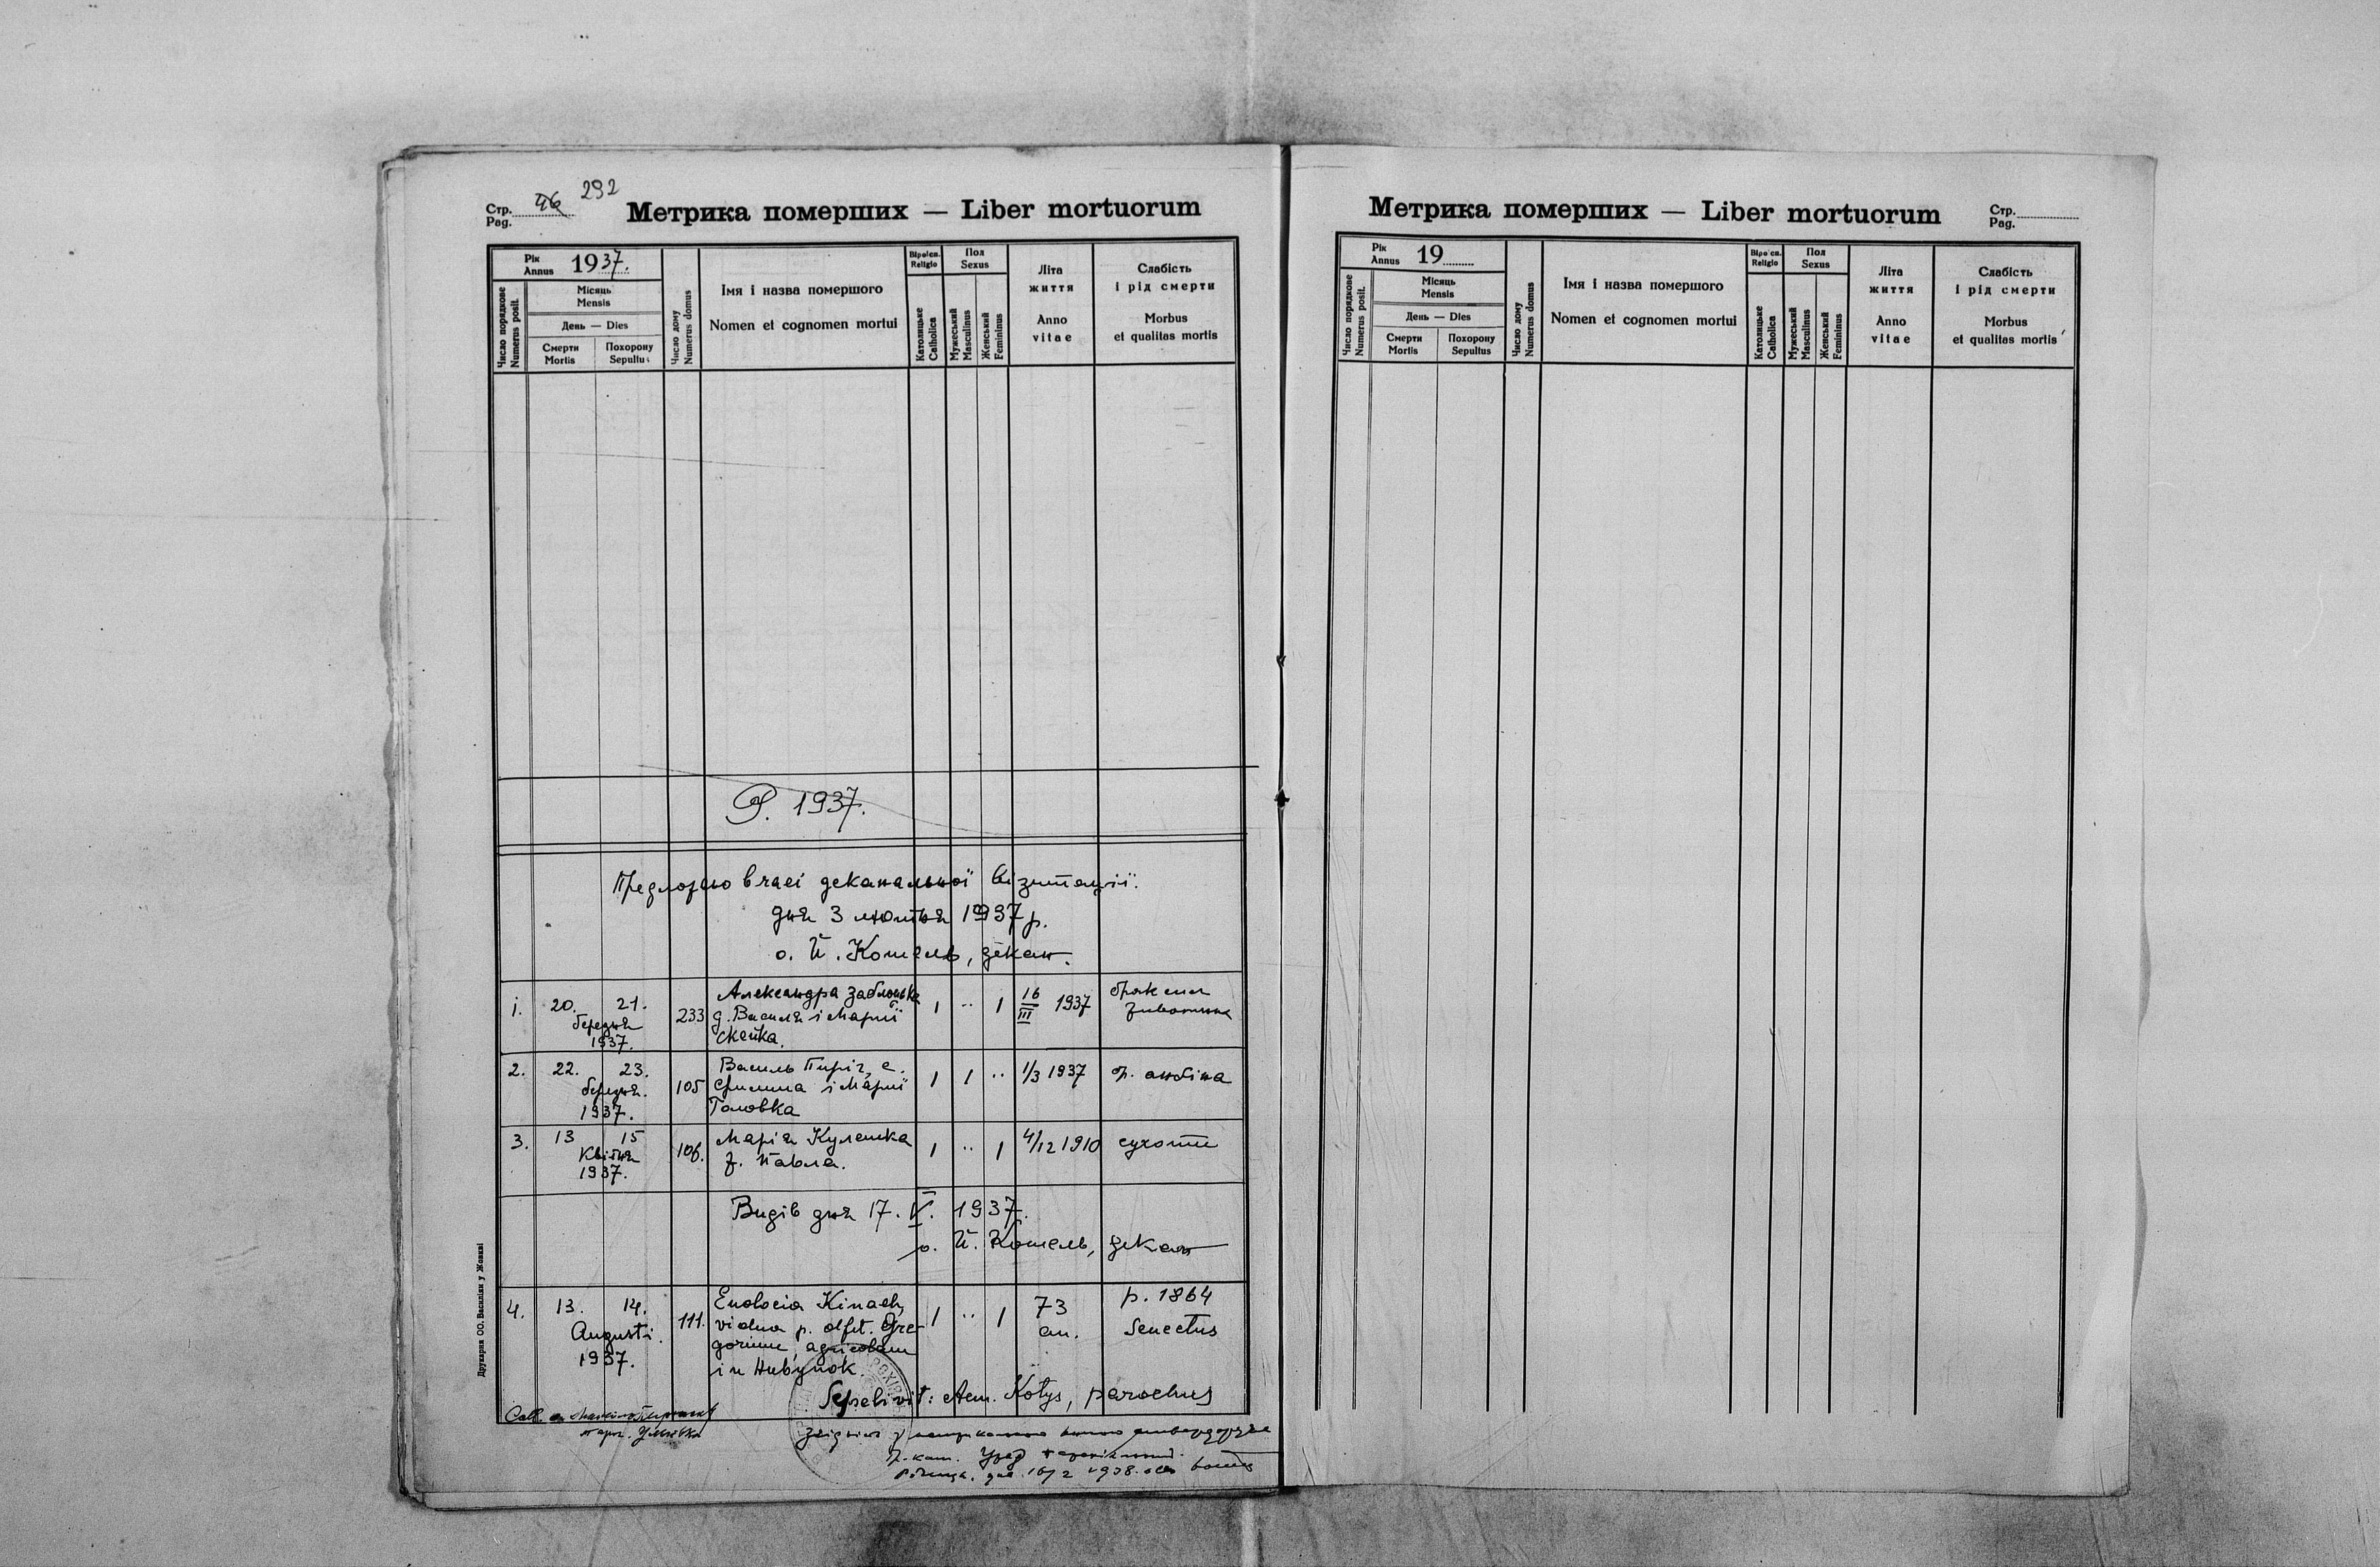 Стр. 46 292
Pag.
Метрика померших — Liber mortuorum
Рік
Annus 1937.
Число порядкове
Numerus posit.
Місяць
Mensis
День — Dies
Смерти
Mortis
Похорону
Sepultus
Число дому
Numerus domus
Імя і назва помершого
Nomen et cognomen mortui
Віроісп.
Religio
Католицьке
Catholica
Пол
Sexus
Мужеський
Masculinus
Женський
Femininus
Літа
життя
Anno
vitae
Слабість
і рід смерти
Morbus
et qualitas mortis
Р. 1937.
Предложено в часі деканальної візитації.
дня 3 лютня 1937 р.
о. Й. Кошель, декан.
1. 20. 21. 233 Александра Заблоцька 1 ·· 1 16 1937
березня д. Василя і Марії III
1937. Скейка.
2. 22. 23. 105 Василь Пиріг, с. 1 1 ·· 1/3 1937 ангіна
березня. Филипа і Марії
1937. Головка
3. 13 15 106. Марія Кулешка 1 ·· 1 4/12 1910 сухоти
Квітня Павла.
1937.
Видів дня 17. V. 1937.
о. Й. Кошель, декан
4. 13. 14. 111. Eudocia Kinach, 1 ·· 1 73 р. 1864
Augusti. vidua p. dfct. Gre- an. Senectus
1937. gorium, agricolam
in Hubynok.
Sepelivit: Aem. Kotys, parochus
метрикальною
Гр. кат. Уряд парохіяльний.
дня 16/2 1938.
Друкарня ОО. Василіян у Жовкві
Метрика померших — Liber mortuorum
Стр.
Pag.
Рік
Annus 19
Число порядкове
Numerus posit.
Місяць
Mensis
День — Dies
Смерти
Mortis
Похорону
Sepultus
Число дому
Numerus domus
Імя і назва помершого
Nomen et cognomen mortui
Віроісп.
Religio
Католицьке
Catholica
Пол
Sexus
Мужеський
Masculinus
Женський
Femininus
Літа
життя
Anno
vitae
Слабість
і рід смерти
Morbus
et qualitas mortis